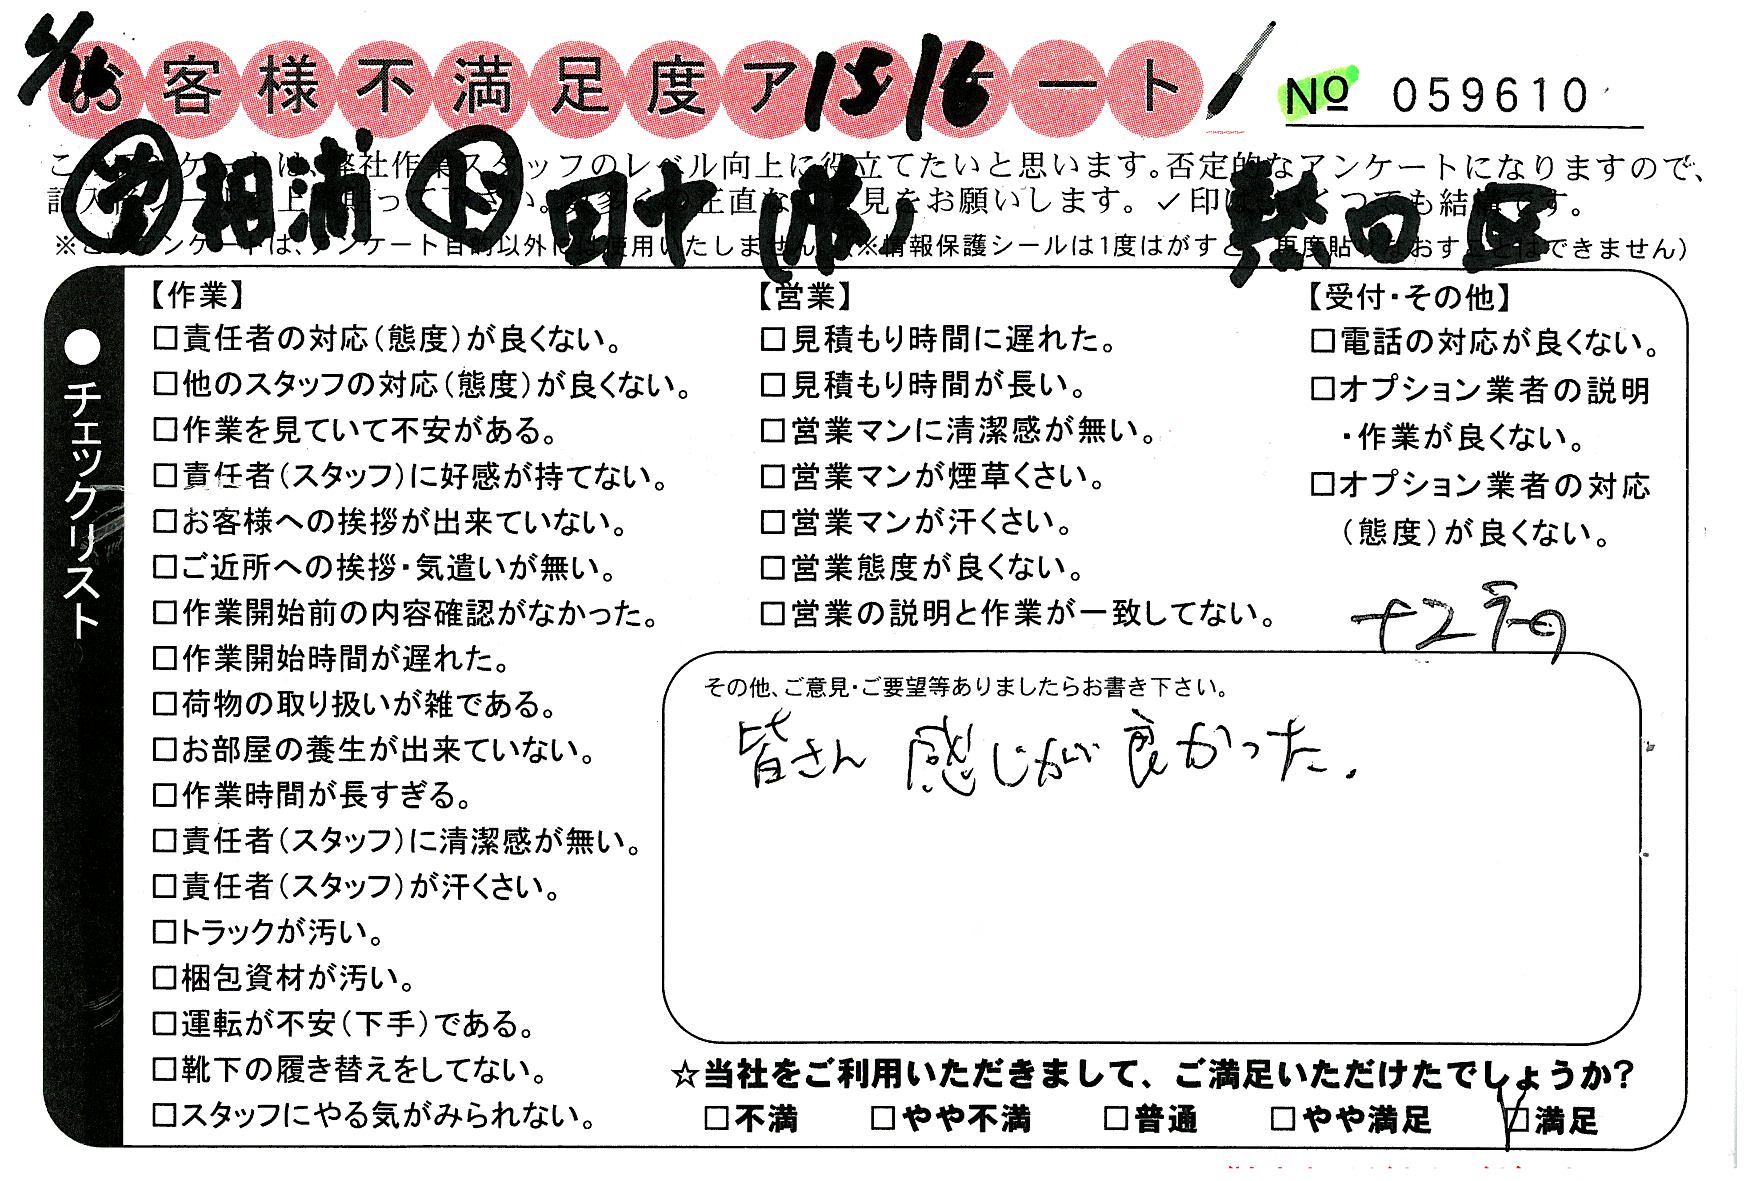 お客様不満足度アンケート
15/16
№ 059610
営 相浦 ト 田中(勝) 熱田区
このアンケートは、弊社作業スタッフのレベル向上に役立てたいと思います。否定的なアンケートになりますので、
正直な 見をお願いします。✓印は くつでも結構です。
※このアンケートは、アンケート目的以外には使用いたしません (※情報保護シールは1度はがすと、再度貼りなおすことはできません)
●チェックリスト
【作業】
□責任者の対応(態度)が良くない。
□他のスタッフの対応(態度)が良くない。
□作業を見ていて不安がある。
□責任者(スタッフ)に好感が持てない。
□お客様への挨拶が出来ていない。
□ご近所への挨拶・気遣いが無い。
□作業開始前の内容確認がなかった。
□作業開始時間が遅れた。
□荷物の取り扱いが雑である。
□お部屋の養生が出来ていない。
□作業時間が長すぎる。
□責任者(スタッフ)に清潔感が無い。
□責任者(スタッフ)が汗くさい。
□トラックが汚い。
□梱包資材が汚い。
□運転が不安(下手)である。
□靴下の履き替えをしてない。
□スタッフにやる気がみられない。
【営業】
□見積もり時間に遅れた。
□見積もり時間が長い。
□営業マンに清潔感が無い。
□営業マンが煙草くさい。
□営業マンが汗くさい。
□営業態度が良くない。
□営業の説明と作業が一致してない。
【受付・その他】
□電話の対応が良くない。
□オプション業者の説明
・作業が良くない。
□オプション業者の対応
(態度)が良くない。
その他、ご意見・ご要望等ありましたらお書き下さい。
皆さん 感じが良かった.
☆当社をご利用いただきまして、ご満足いただけたでしょうか?
□不満 □やや不満 □普通 □やや満足 ☑満足